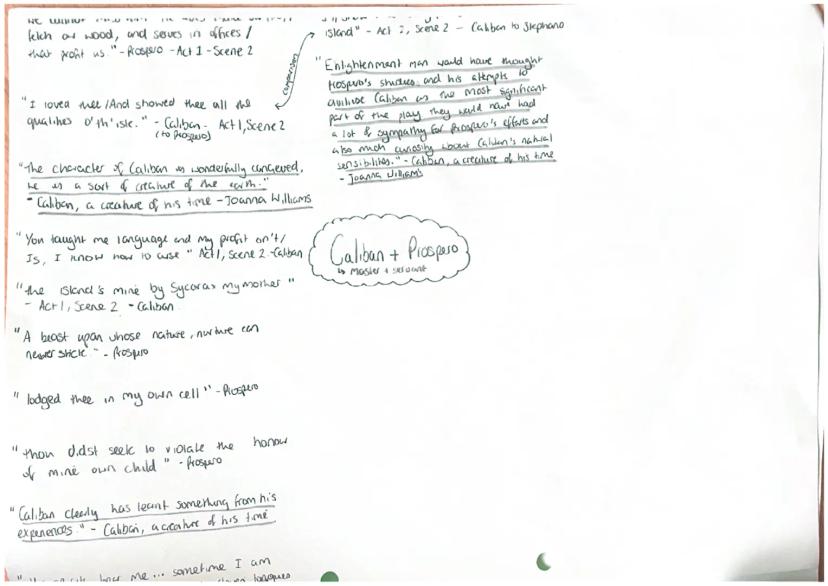 fetch our wood, and serves in offices /
that profit us." - Prospero - Act 1 - Scene 2
"I loved thee / And showed thee all the
qualities o'th'isle." - Caliban - Act 1, Scene 2
(to prospero)
"The character of Caliban is wonderfully conceived,
he is a sort of creature of the earth."
- Caliban, a creature of his time - Joanna Williams
"You taught me language and my profit on't /
Is, I know how to curse" Act 1, Scene 2 - Caliban
"the island's mine by Sycorax my mother"
- Act 1, Scene 2 - Caliban
"A beast upon whose nature, nurture can
never stick" - Prospero
"lodged thee in my own cell" - Prospero
"thou didst seek to violate the honour
of mine own child" - Prospero
"Caliban clearly has learnt something from his
experiences." - Caliban, a creature of his time
me... sometime I am
comparison
island" - Act 2, Scene 2 - Caliban to Stephano
"Enlightenment man would have thought
Prospero's studies and his attempts to
civilise Caliban as the most significant
part of the play. They would have had
a lot of sympathy for Prospero's efforts and
also much curiosity about Caliban's natural
sensibilities." - Caliban, a creature of his time
- Joanna Williams
Caliban + Prospero
↳ master + servant